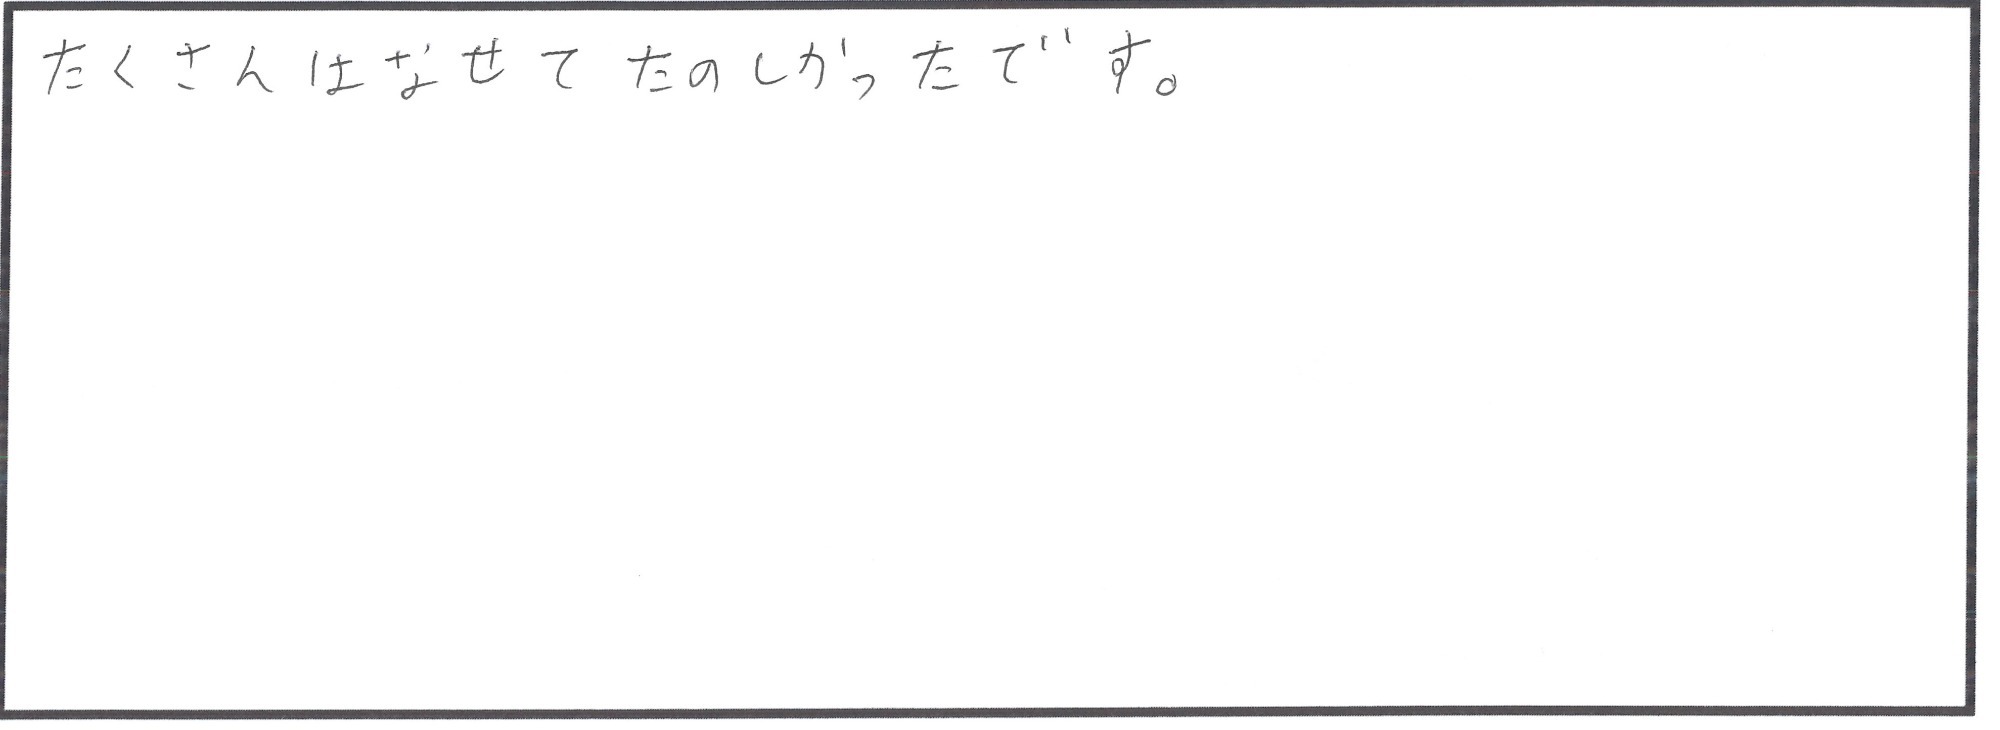 たくさんはなせてたのしかったです。